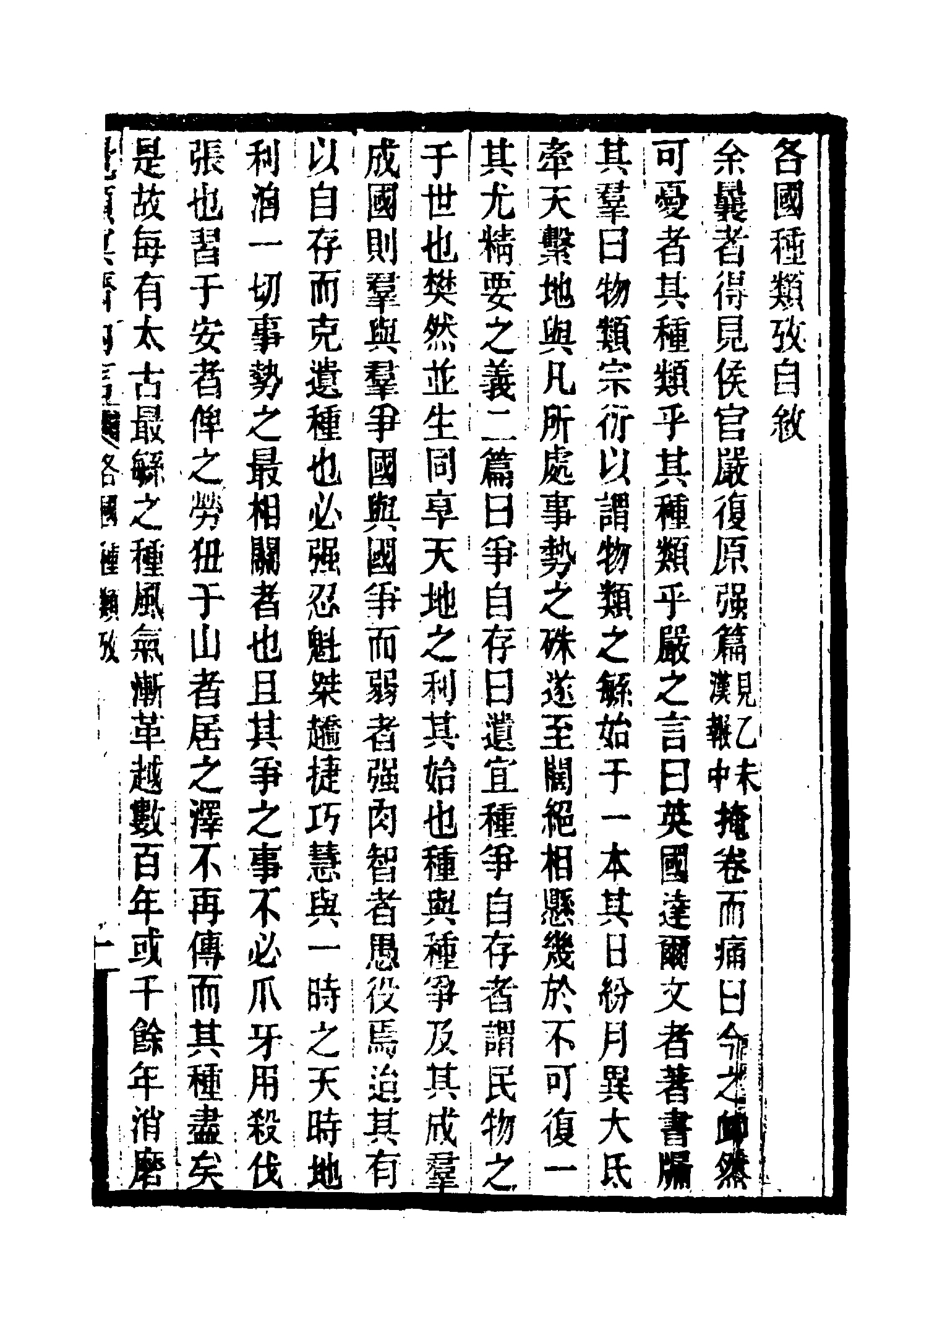 各國種類攷自敘
余曩者得見侯官嚴復原强篇見乙未漢報中掩卷而痛曰今之岿然
可憂者其種類乎其種類乎嚴之言曰英國達爾文者著書牖
其羣曰物類宗衍以謂物類之緐始于一本其日紛月異大氐
牽天繫地與凡所處事勢之殊遂至闊絕相懸幾於不可復一
其尤精要之義二篇曰爭自存曰遺宜種爭自存者謂民物之
于世也樊然並生同享天地之利其始也種與種爭及其成羣
成國則羣與羣爭國與國爭而弱者强肉智者愚役焉迨其有
以自存而克遺種也必强忍魁桀趫捷巧慧與一時之天時地
利洎一切事勢之最相關者也且其爭之事不必爪牙用殺伐
張也習于安者俾之勞狃于山者居之澤不再傳而其種盡矣
是故每有太古最緐之種風氣漸革越數百年或千餘年消磨
覺顛冥齋內言 各國種類攷 一